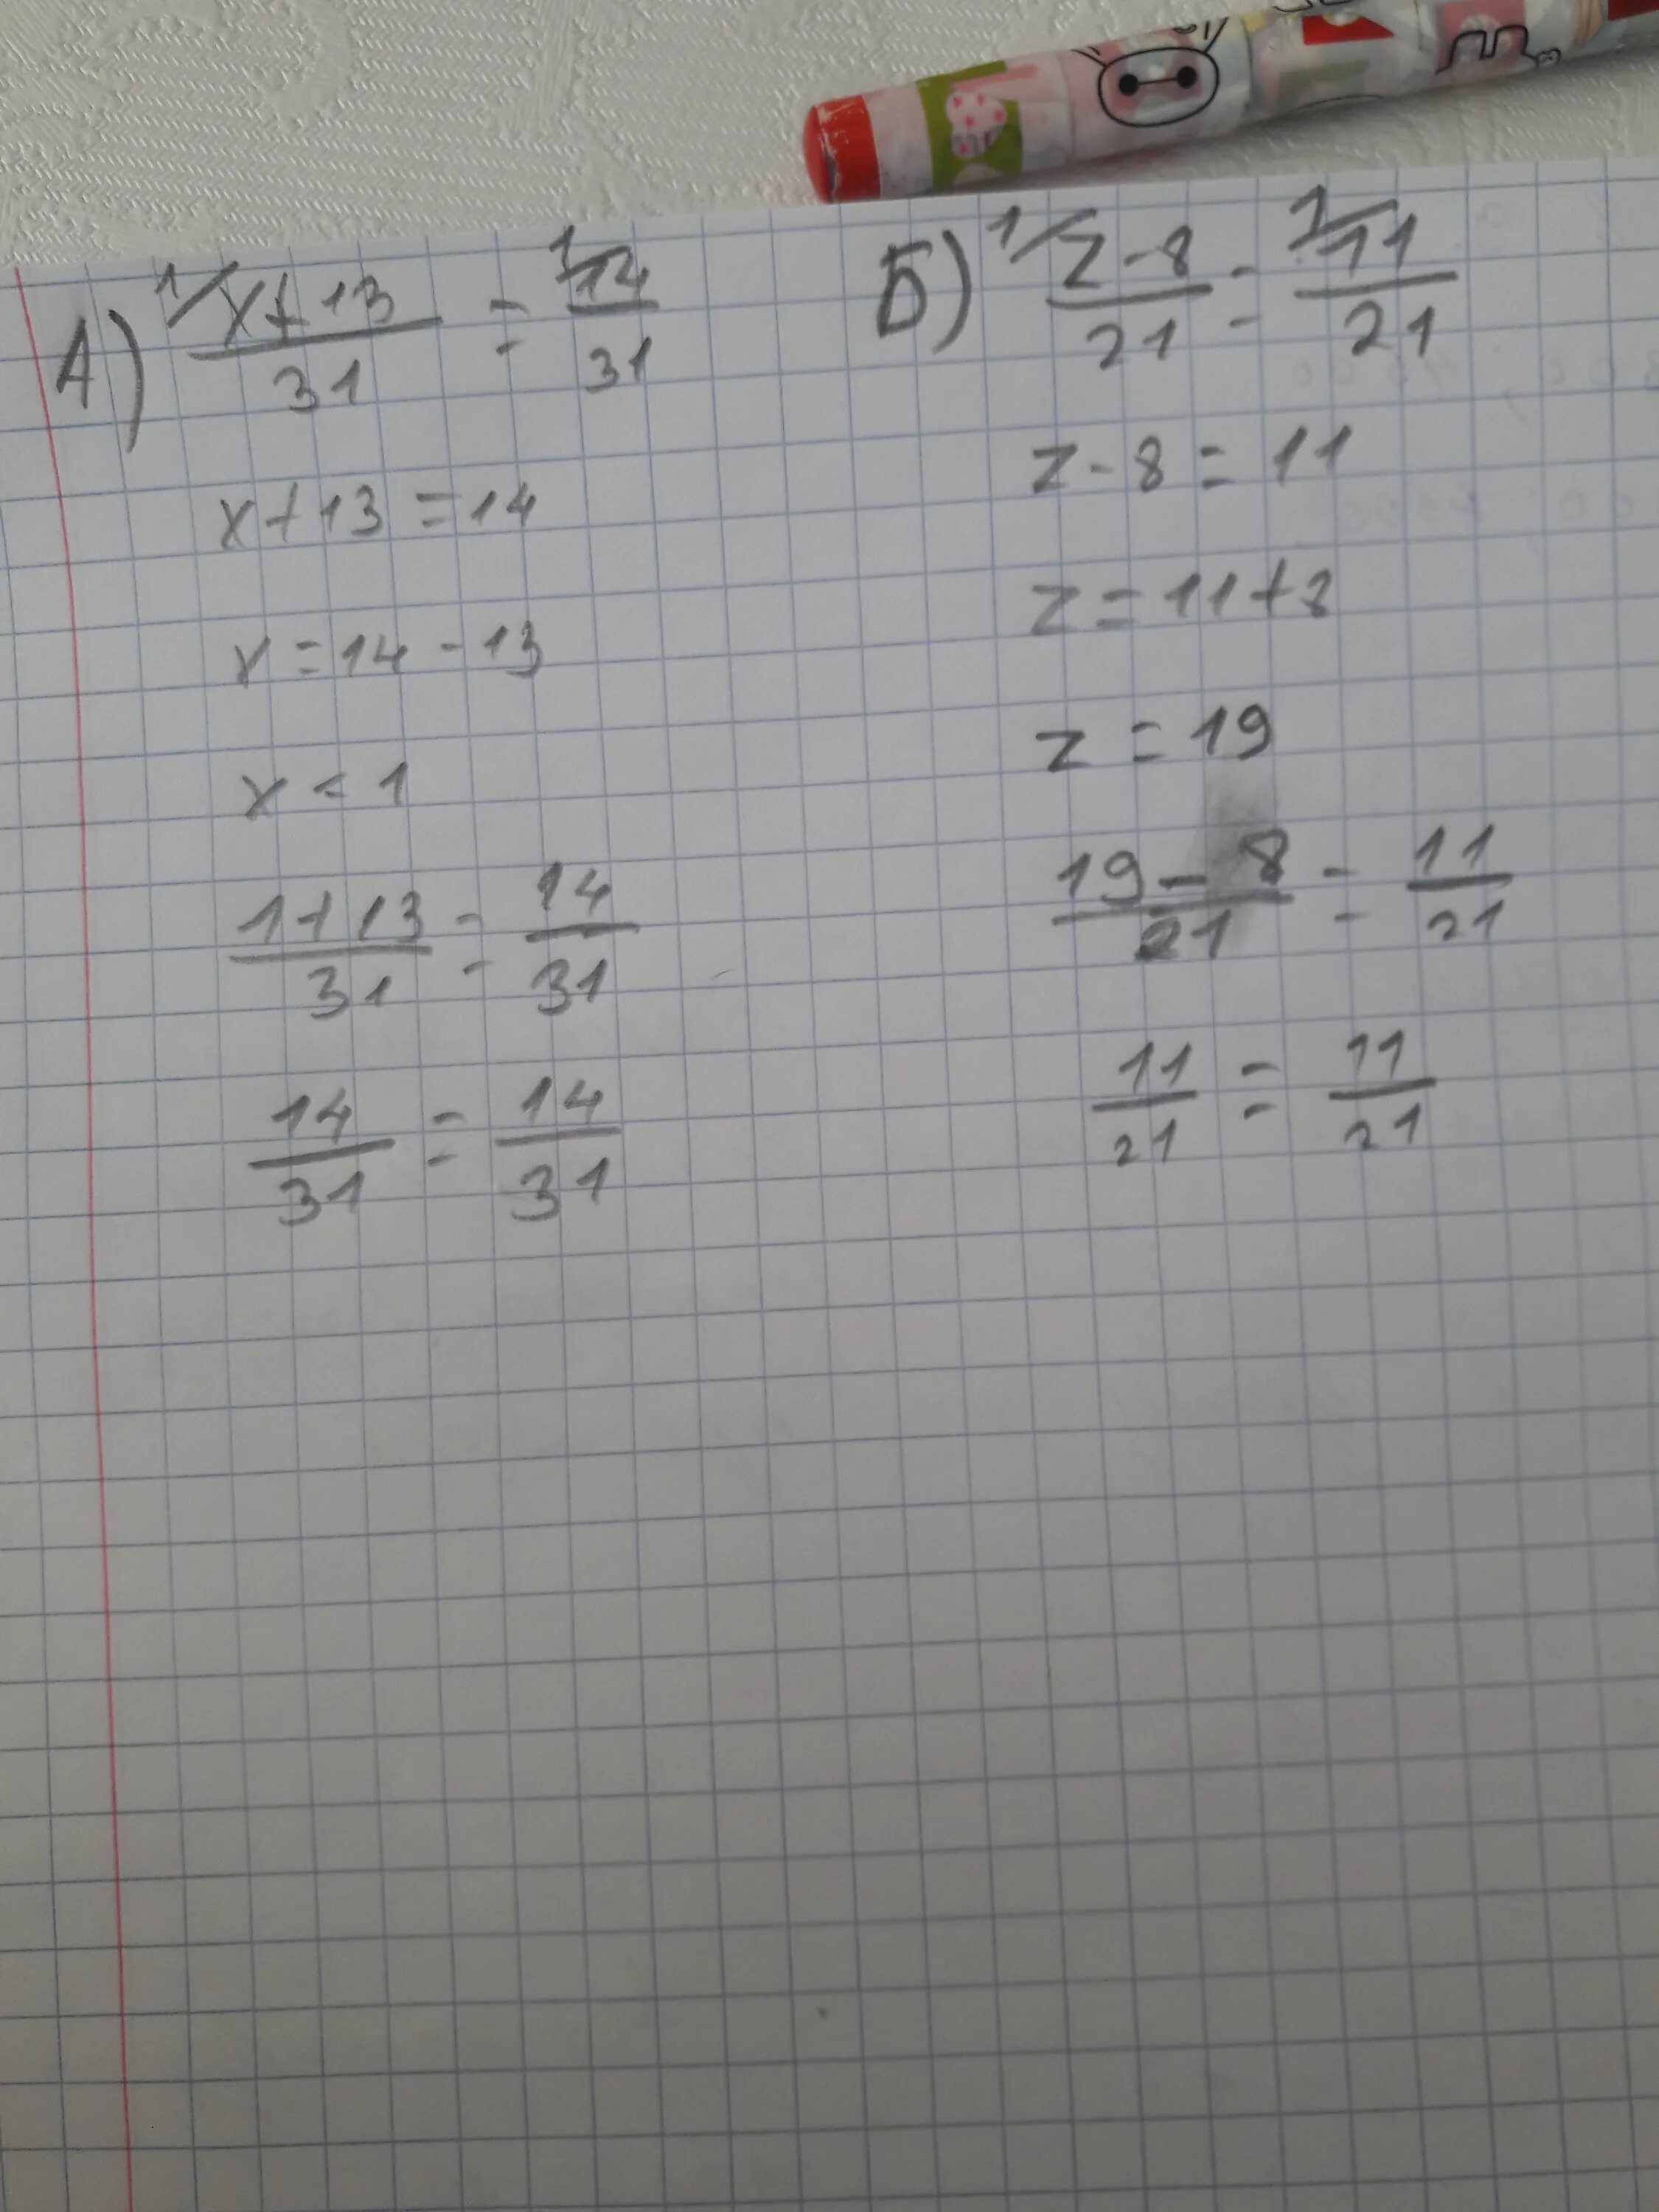 А) 1/ x+13/31 = 1/ 14/31
x+13=14
x=14-13
x=1
1+13/31 = 14/31
14/31 = 14/31
Б) 1/ z-8/21 = 1/ 11/21
z-8=11
z=11+8
z=19
19-8/21 = 11/21
11/21 = 11/21